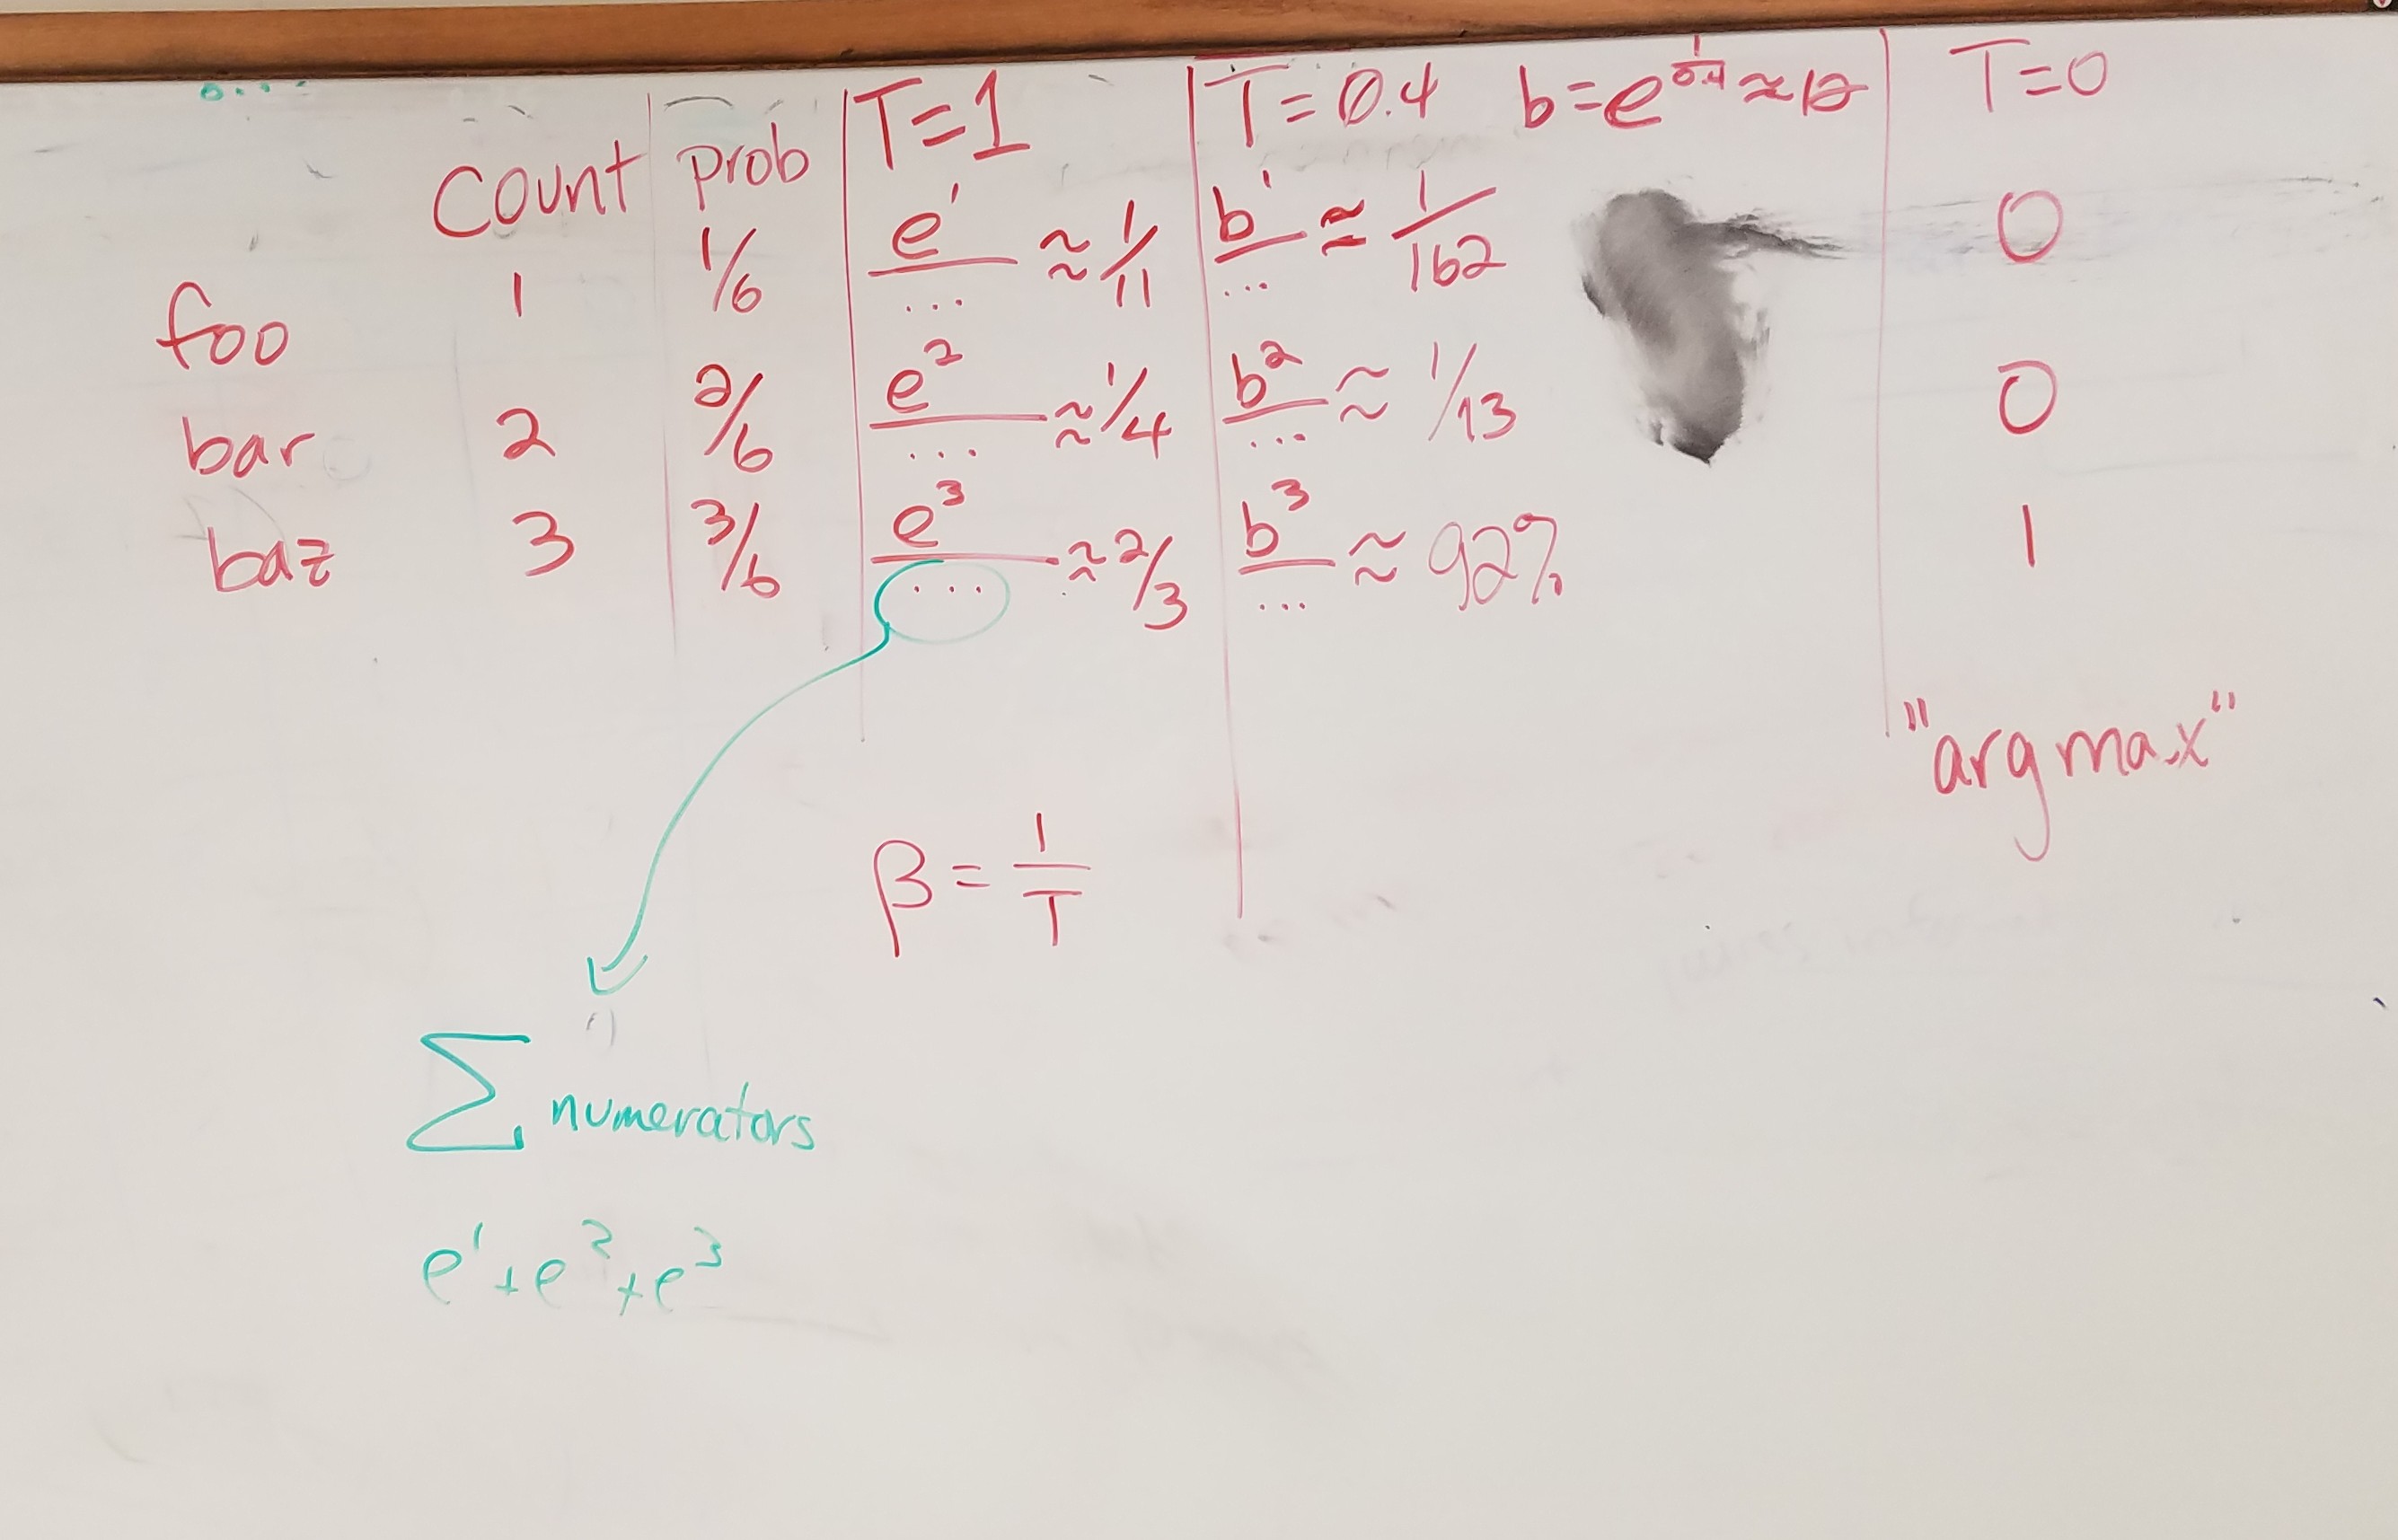 count prob T=1 T=0.4 b=e^(1/0.4)≈12 T=0
foo 1 1/6 e¹/... ≈ 1/11 b¹/... ≈ 1/162 0
bar 2 2/6 e²/... ≈ 1/4 b²/... ≈ 1/13 0
baz 3 3/6 e³/... ≈ 2/3 b³/... ≈ 92% 1
"argmax"
β = 1/T
Σ numerators
e¹+e²+e³